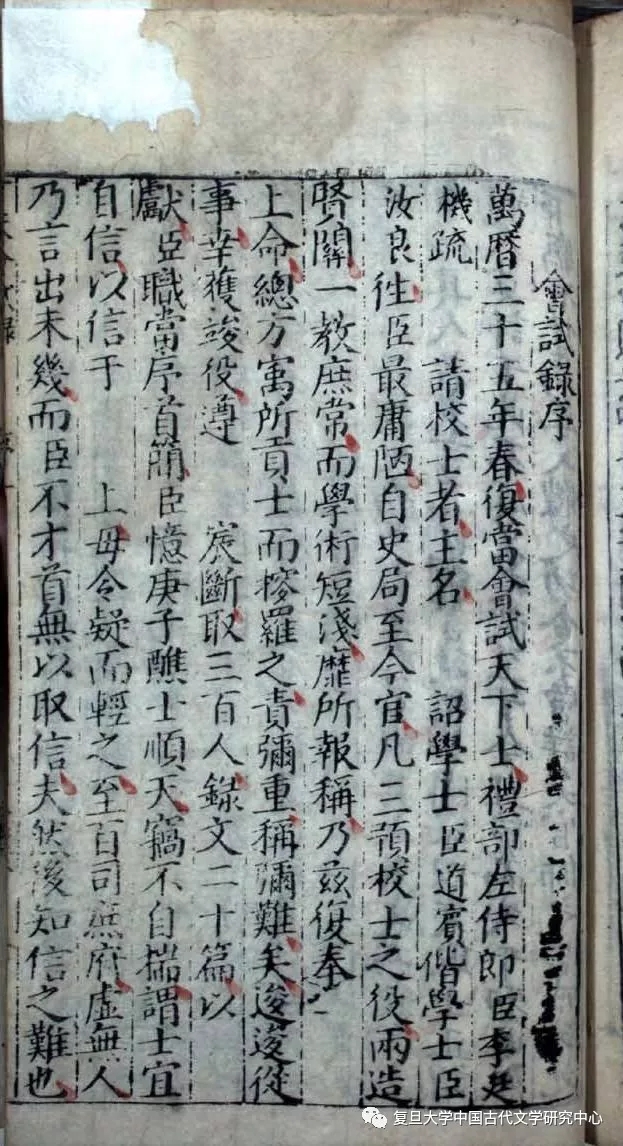 會試錄序
萬曆三十五年春復當會試天下士禮部左侍郎臣李廷
機疏　請校士者主名　詔學士臣道賓偕學士臣
汝良徃臣最庸陋自史局至今官凡三預校士之役兩造
賢關一教庶常而學術短淺靡所報稱乃茲復奉
上命總方寓所貢士而樛羅之責彌重稱彌難矣逡逡從
事幸獲竣役遵　宸斷取三百人錄文二十篇以
獻臣職當序首簡臣憶庚子醮士順天竊不自揣謂士宜
自信以信于　上毋令疑而輕之至百司庶府虛無人
乃言出未幾而臣不才首無以取信夫然後知信之難也
复旦大学中国古代文学研究中心